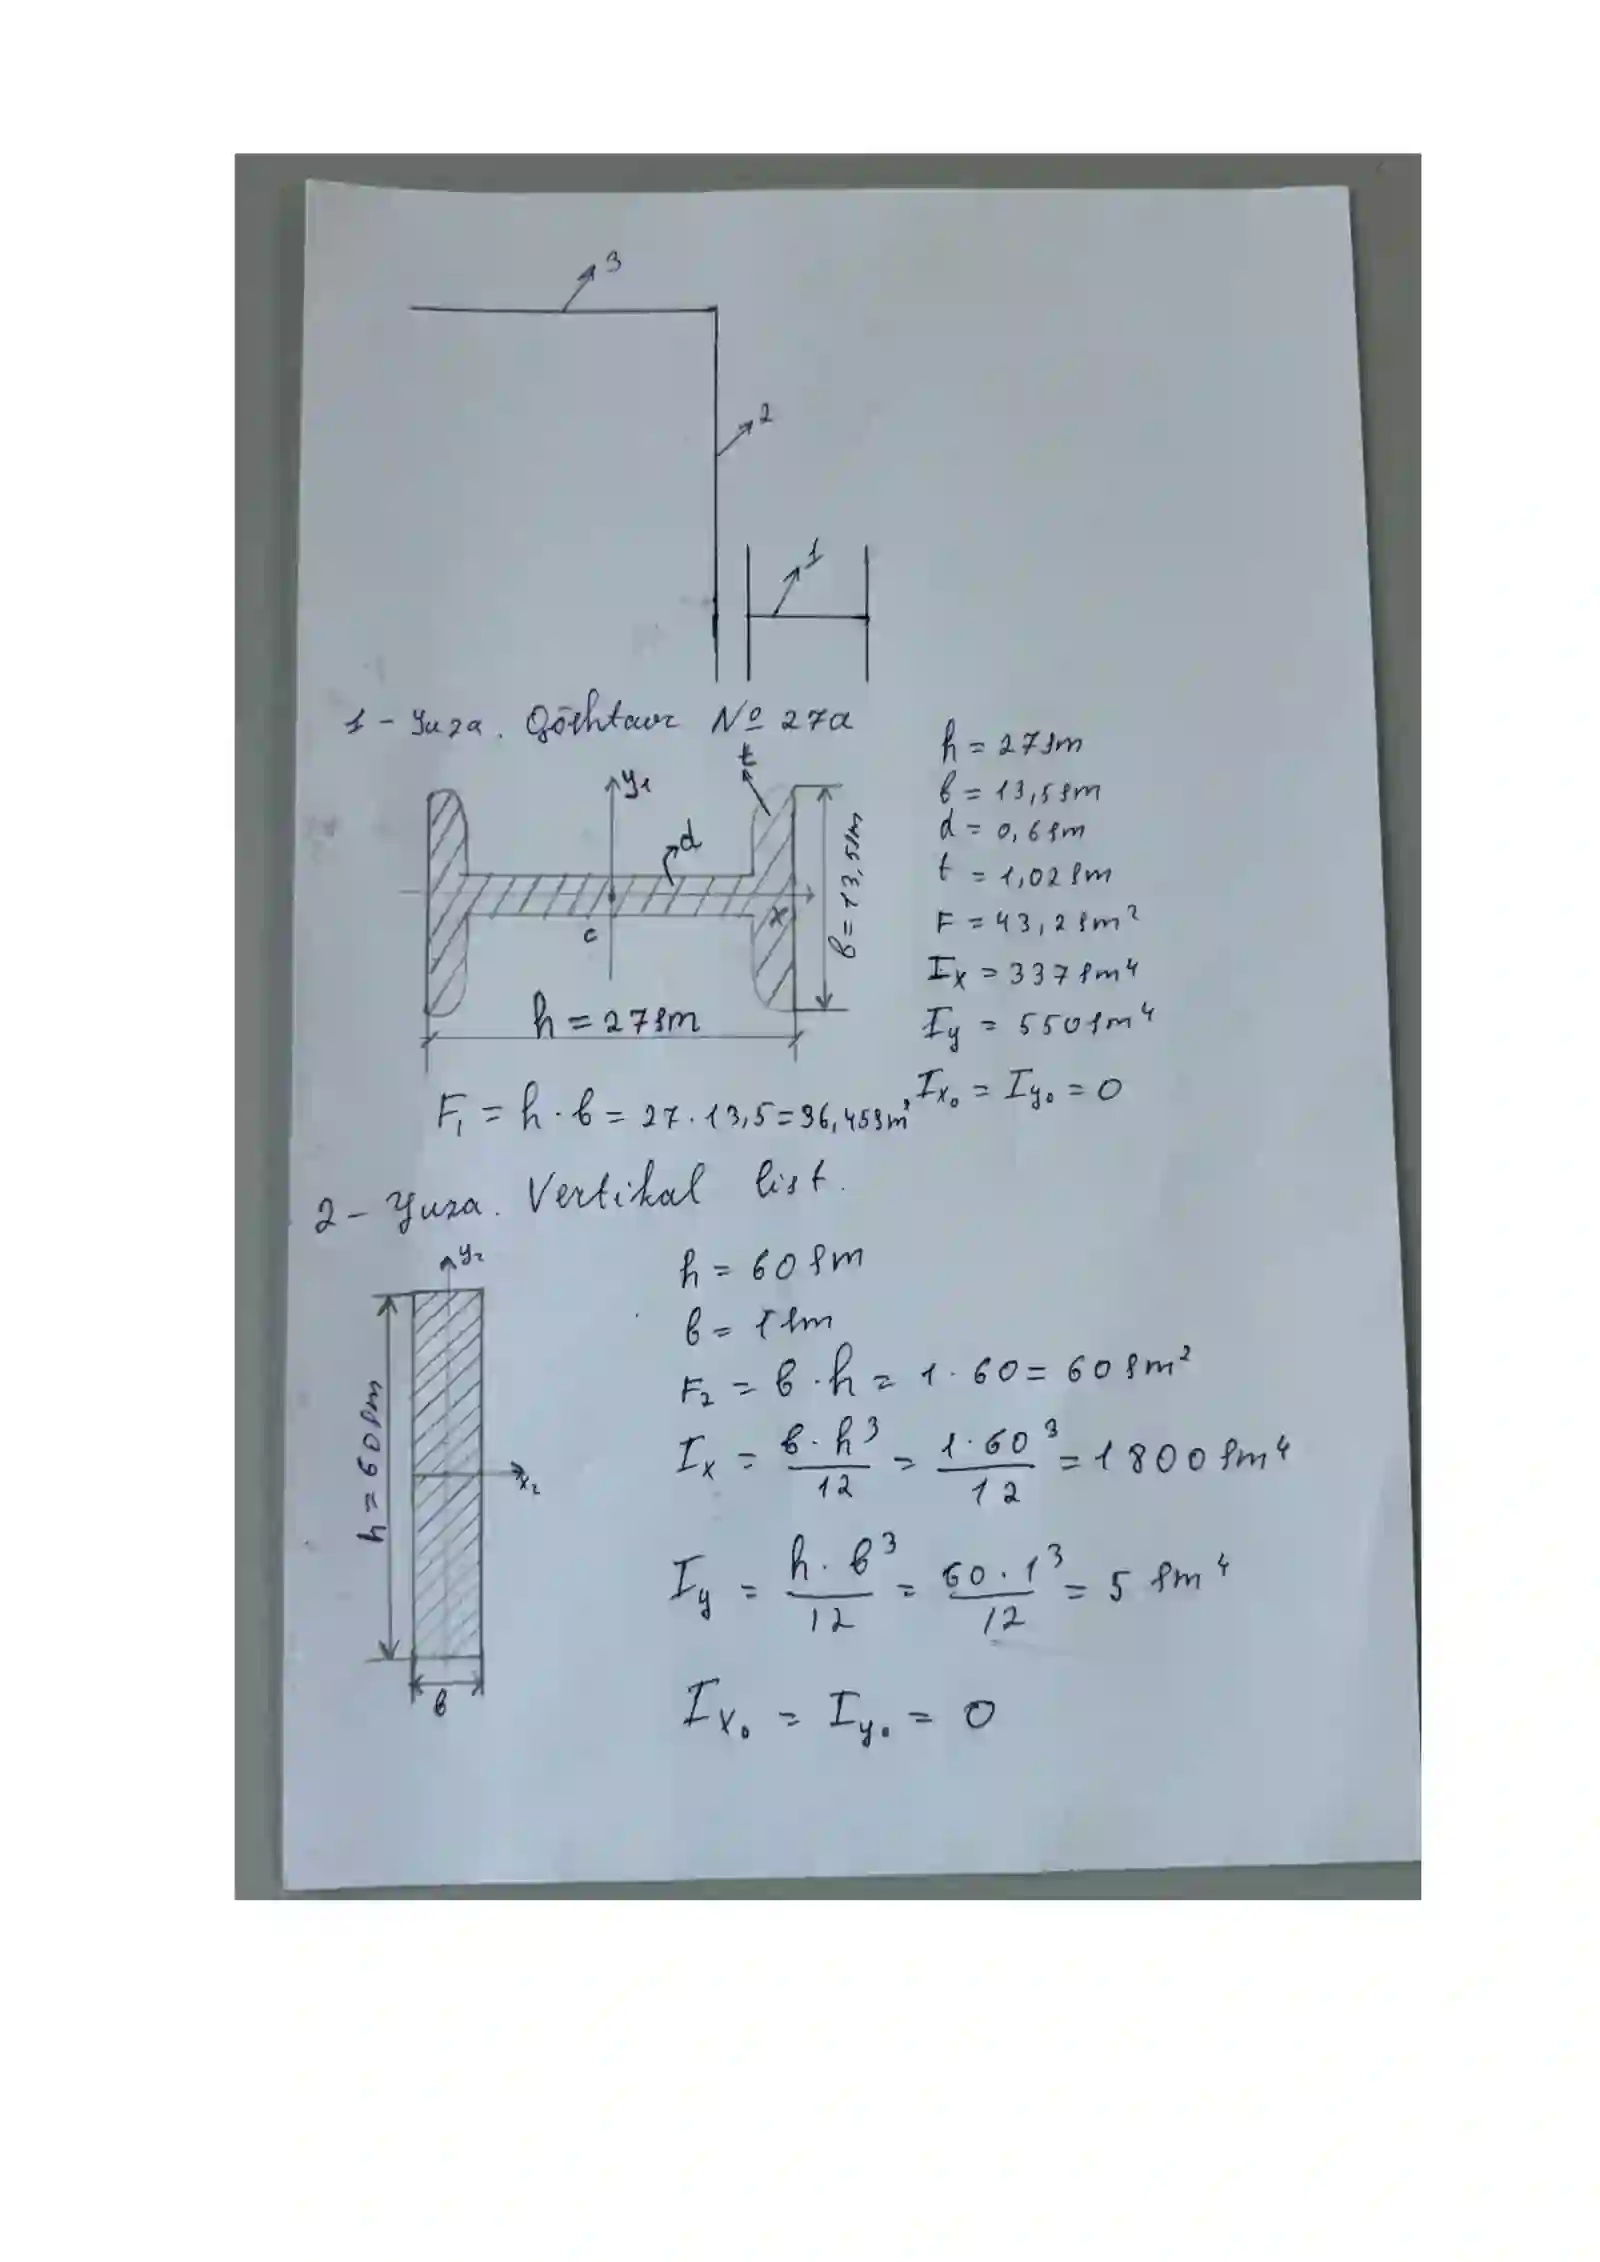 3
2
1
1 - Yuza. Qöshtavr № 27a
t
y₁
d
x
c
b = 13,5 sm
h = 27 sm
h = 27 sm
b = 13,5 sm
d = 0,6 sm
t = 1,02 sm
F = 43,2 sm²
Ix = 337 sm⁴
Iy = 550 sm⁴
Ix₀ = Iy₀ = 0
F₁ = h · b = 27 · 13,5 = 36,45 sm²
2 - Yuza. Vertikal list.
y₂
x₂
h = 60 sm
b
h = 60 sm
b = 1 sm
F₂ = b · h = 1 · 60 = 60 sm²
Ix = b · h³ / 12 = 1 · 60³ / 12 = 1800 sm⁴
Iy = h · b³ / 12 = 60 · 1³ / 12 = 5 sm⁴
Ix₀ = Iy₀ = 0